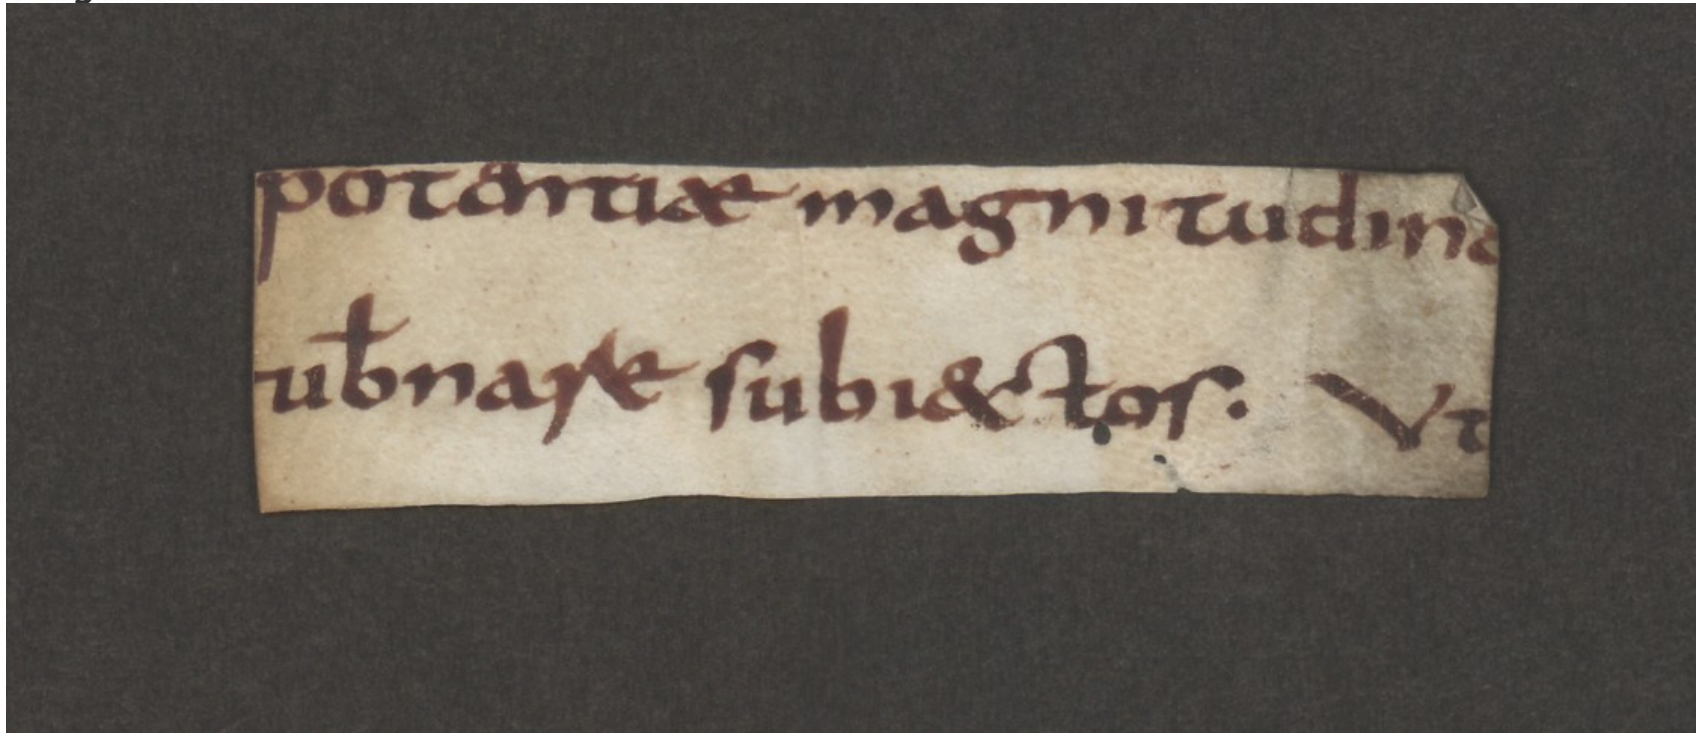 potentiæ magnitudine
ub̄nare subi&tos. Vt